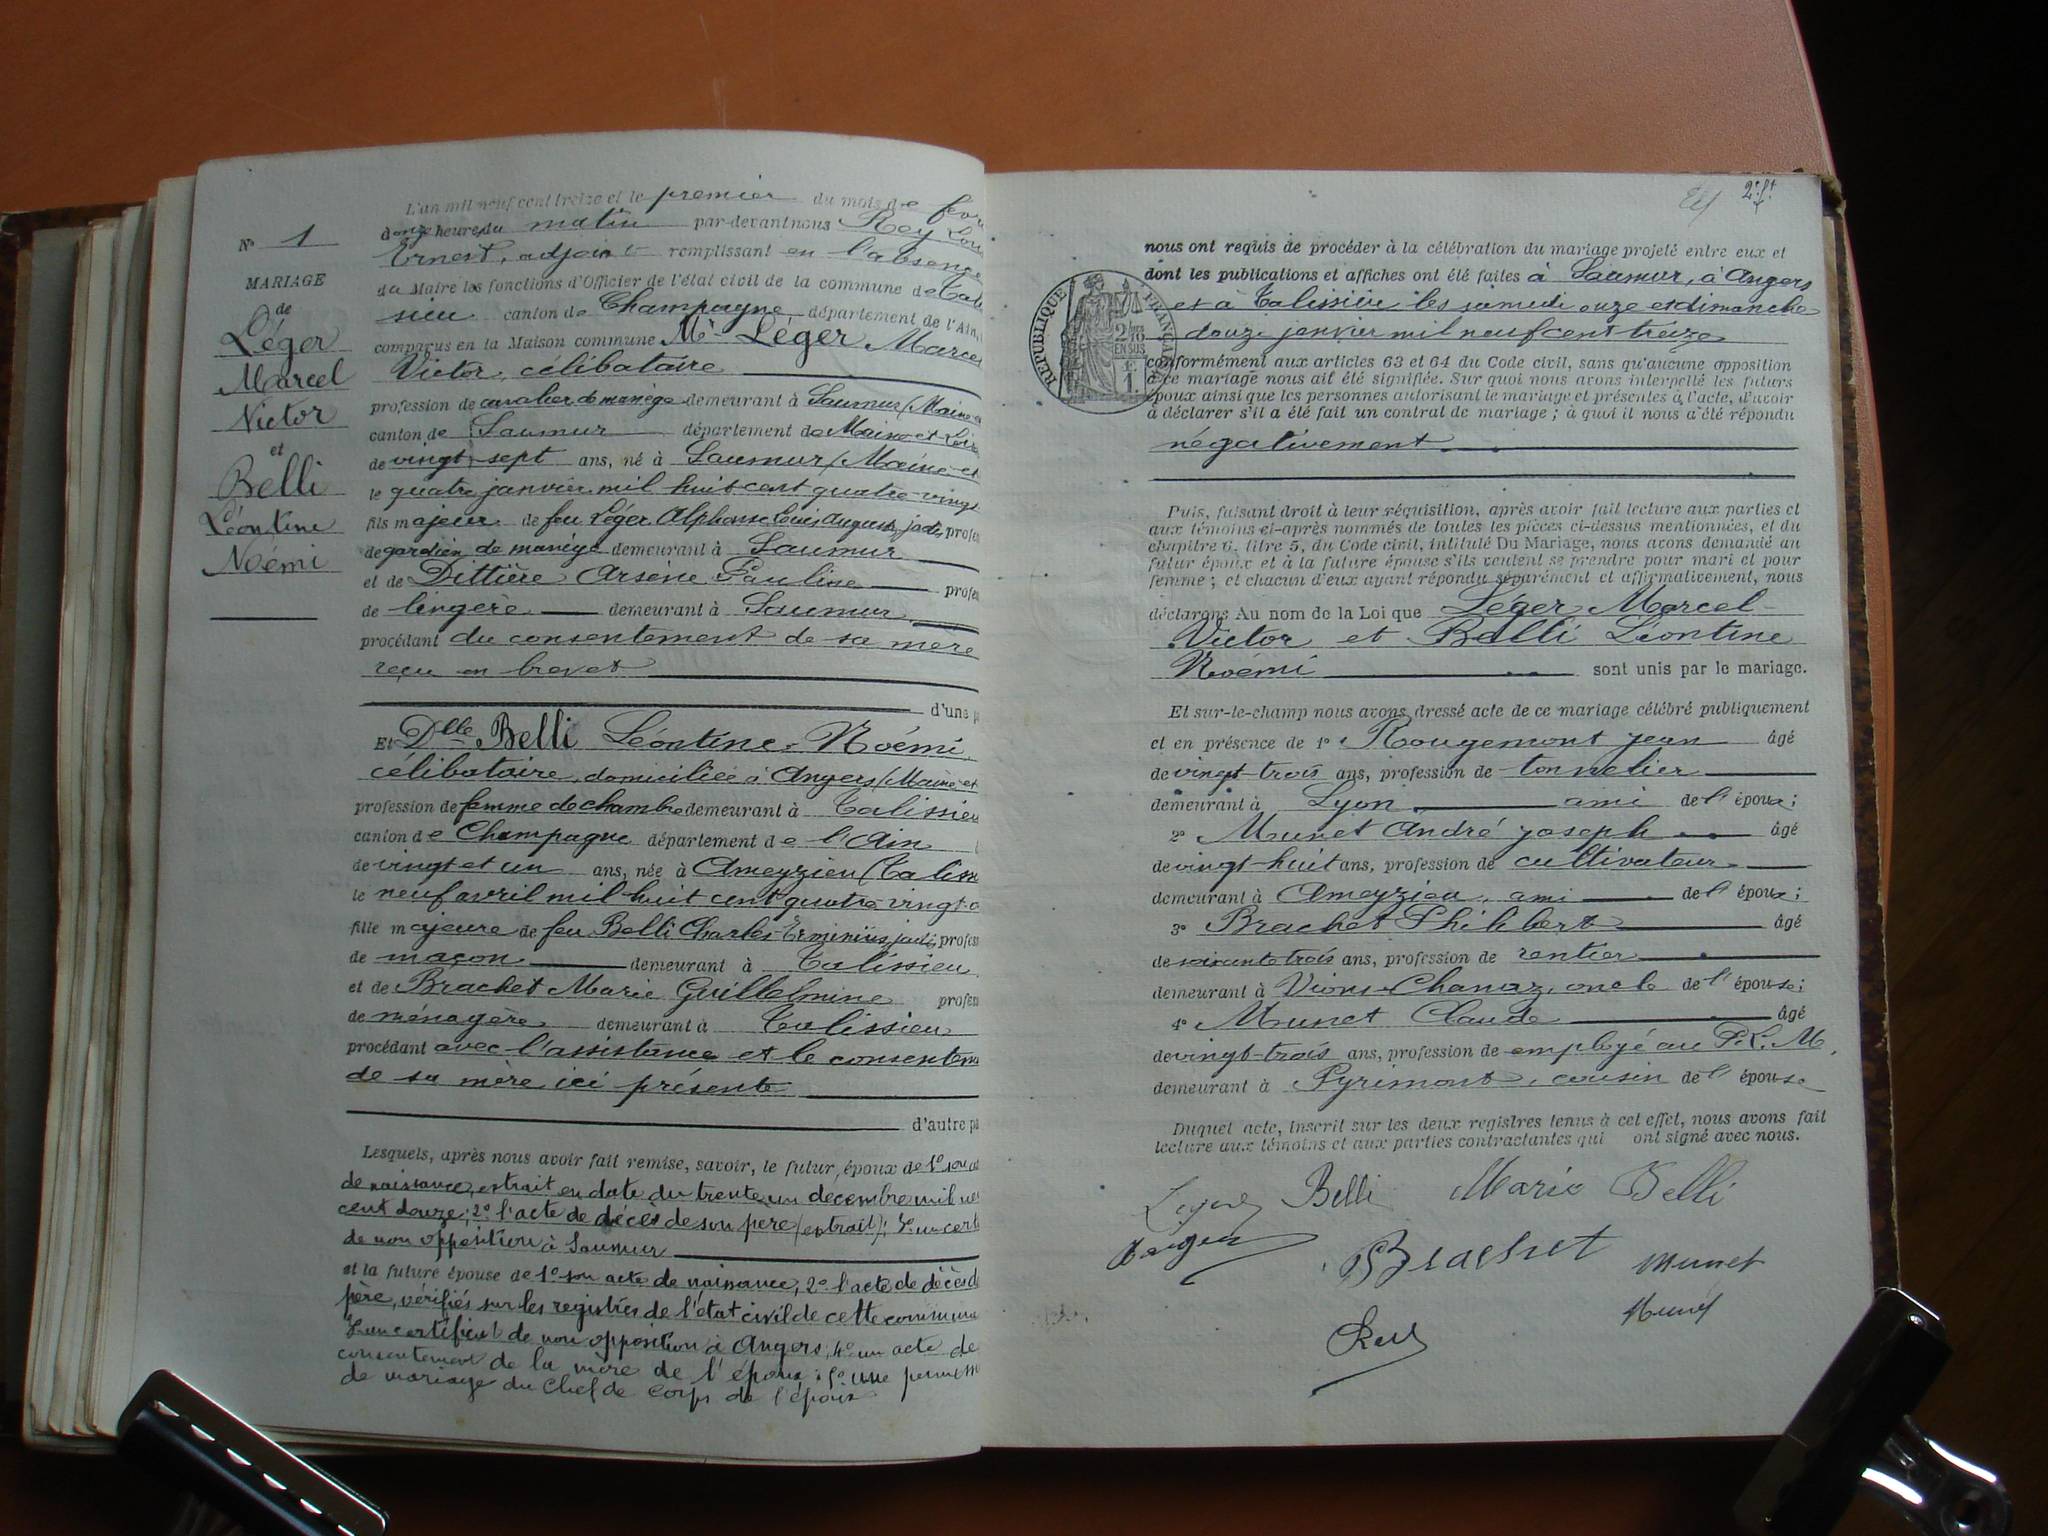 N° 1
MARIAGE
de
Léger
Marcel
Victor
et
Belli
Léontine
Noémi
L'an mil neuf cent treize et le premier du mois de
à onze heure du matin par-devant nous Rey
Ernest, adjoint remplissant en l'absence
du Maire les fonctions d'Officier de l'état civil de la commune de
sieu canton de Champagne, département de l'Ain,
comparus en la Maison commune Mr Léger Marcel
Victor, célibataire
profession de cavalier de manège demeurant à Saumur (Maine
canton de Saumur département de Maine et
de vingt-sept ans, né à Saumur (Maine et
le quatre janvier mil huit cent quatre-vingt
fils majeur de feu Léger Alphonse Louis Auguste, jadis
de gardien de manège demeurant à Saumur
et de Dittière Arsène Pauline
de lingère demeurant à Saumur
procédant du consentement de sa mère
reçu en brevet
d'une
Et Dlle Belli Léontine Noémi,
célibataire, domiciliée à Angers (Maine et
profession de femme de chambre demeurant à Talissieu
canton de Champagne département de l'Ain
de vingt et un ans, née à Ameyzieu
le neuf avril mil huit cent quatre vingt
fille majeure de feu Belli Charles jadis
de maçon demeurant à Talissieu
et de Brachet Marie Guillelmine
de ménagère demeurant à Talissieu
procédant avec l'assistance et le
de sa mère ici présente
d'autre
Lesquels, après nous avoir fait remise, savoir, le futur époux de 1° son
de naissance, extrait en date du trente un décembre mil
cent douze; 2° l'acte de décès de son père (extrait); 3° un
de non opposition à Saumur
et la future épouse de 1° son acte de naissance, 2° l'acte de décès
père, vérifiés sur les registres de l'état civil de cette
3° un certificat de non opposition à Angers; 4° un acte de
consentement de la mère de l'époux; 5° une
de mariage du Chef de Corps de l'époux
2e ft
nous ont requis de procéder à la célébration du mariage projeté entre eux et
dont les publications et affiches ont été faites à Saumur, à Angers
et à Talissieu les samedi onze et dimanche
douze janvier mil neuf cent treize
RÉPUBLIQUE FRANÇAISE
2/10
EN SUS
1F
conformément aux articles 63 et 64 du Code civil, sans qu'aucune opposition
à ce mariage nous ait été signifiée. Sur quoi nous avons interpellé les futurs
époux ainsi que les personnes autorisant le mariage et présentes à l'acte, d'avoir
à déclarer s'il a été fait un contrat de mariage; à quoi il nous a été répondu
négativement
Puis, faisant droit à leur réquisition, après avoir fait lecture aux parties et
aux témoins ci-après nommés de toutes les pièces ci-dessus mentionnées, et du
chapitre 6, titre 5, du Code civil, intitulé Du Mariage, nous avons demandé au
futur époux et à la future épouse s'ils veulent se prendre pour mari et pour
femme; et chacun d'eux ayant répondu séparément et affirmativement, nous
déclarons Au nom de la Loi que Léger Marcel
Victor et Belli Léontine
Noémi sont unis par le mariage.
Et sur-le-champ nous avons dressé acte de ce mariage célébré publiquement
et en présence de 1° Rougemont Jean âgé
de vingt-trois ans, profession de tonnelier
demeurant à Lyon ami de l'époux;
2° Munet André Joseph âgé
de vingt-huit ans, profession de cultivateur
demeurant à Ameyzieu, ami de l'époux;
3° Brachet Philibert âgé
de soixante trois ans, profession de rentier
demeurant à Vions-Chanaz, oncle de l'épouse;
4° Munet Claude âgé
de vingt-trois ans, profession de employé au P.L.M,
demeurant à Pyrimont, cousin de l'épouse
Duquel acte, inscrit sur les deux registres tenus à cet effet, nous avons fait
lecture aux témoins et aux parties contractantes qui ont signé avec nous.
Léger Belli Marie Belli
Brachet Munet
Munet
Rey